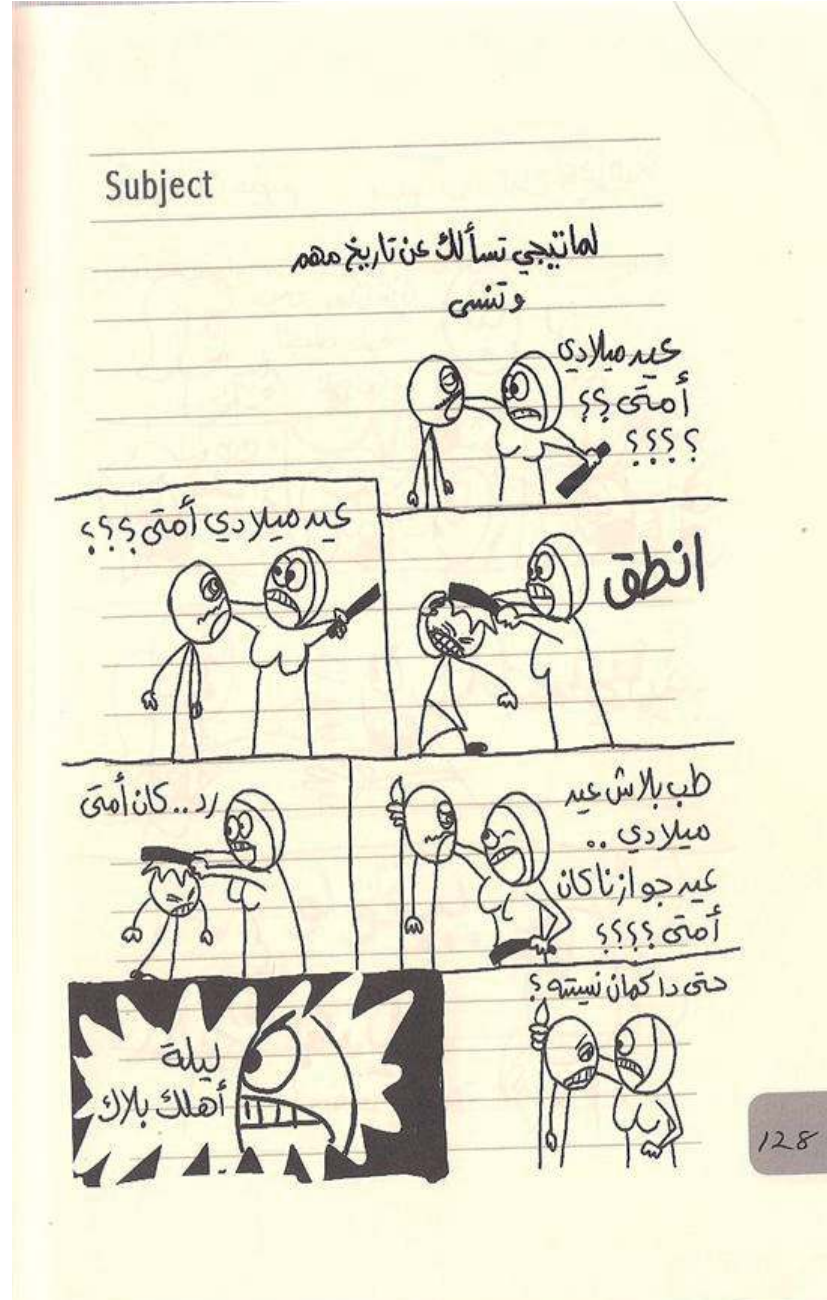 Subject
لما تيجي تسألك عن تاريخ مهم
و تنسى
عيد ميلادي
أمتى ؟؟
؟؟؟؟
انطق
عيد ميلادي أمتى ؟؟؟
طب بلاش عيد
ميلادي ..
عيد جوازنا كان
أمتى ؟؟؟؟
رد .. كان أمتى
حتى دا كمان نسيته ؟
ليلة
أهلك بلاك
128